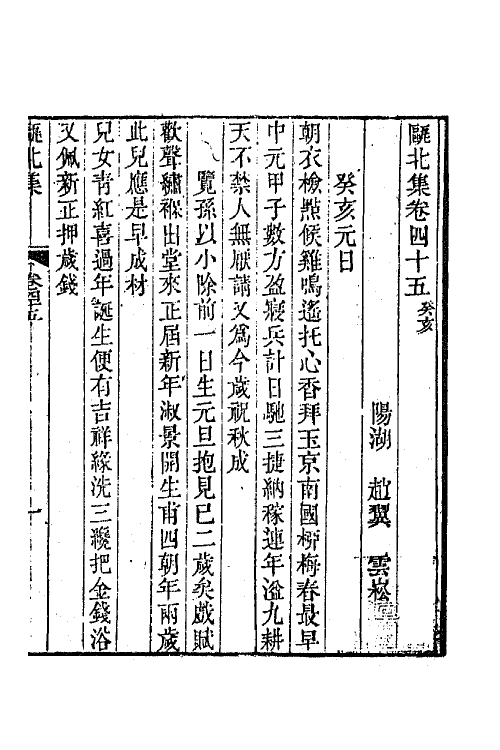 甌北集卷四十五 癸亥
陽湖 趙翼 雲崧
癸亥元日
朝衣檢點候雞鳴遙托心香拜玉京南國柳梅春最早
中元甲子數方盈寢兵計日馳三捷納稼連年溢九耕
天不禁人無厭請又為今歲祝秋成
覽孫以小除前一日生元旦抱見已二歲矣戲賦
歡聲繡褓出堂來正屆新年淑景開生甫四朝年兩歲
此兒應是早成材
兒女青紅喜過年誕生便有吉祥緣洗三纔把金錢浴
又佩新正押歲錢
甌北集 卷四十五 一